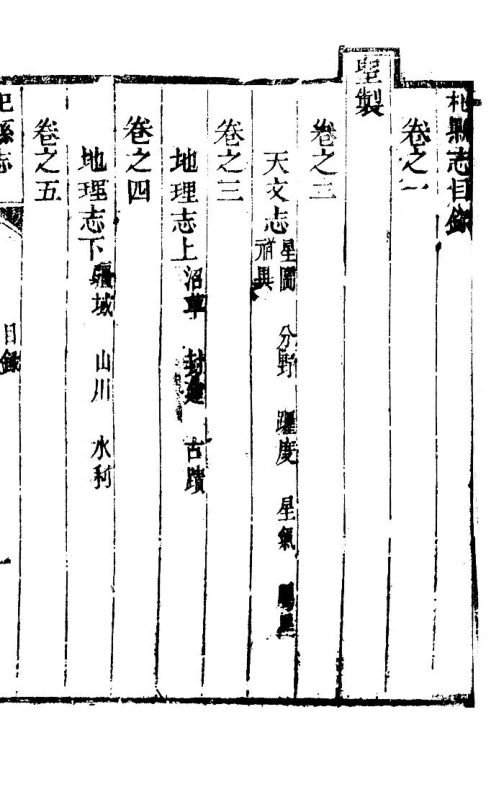 杞縣志目錄
卷之一
聖製
卷之二
天文志 星圖 分野 躔度 星氣
祥異
卷之三
地理志上 沿革 封建 古蹟
卷之四
地理志下 疆域 山川 水利
卷之五
杞縣志 目錄 一